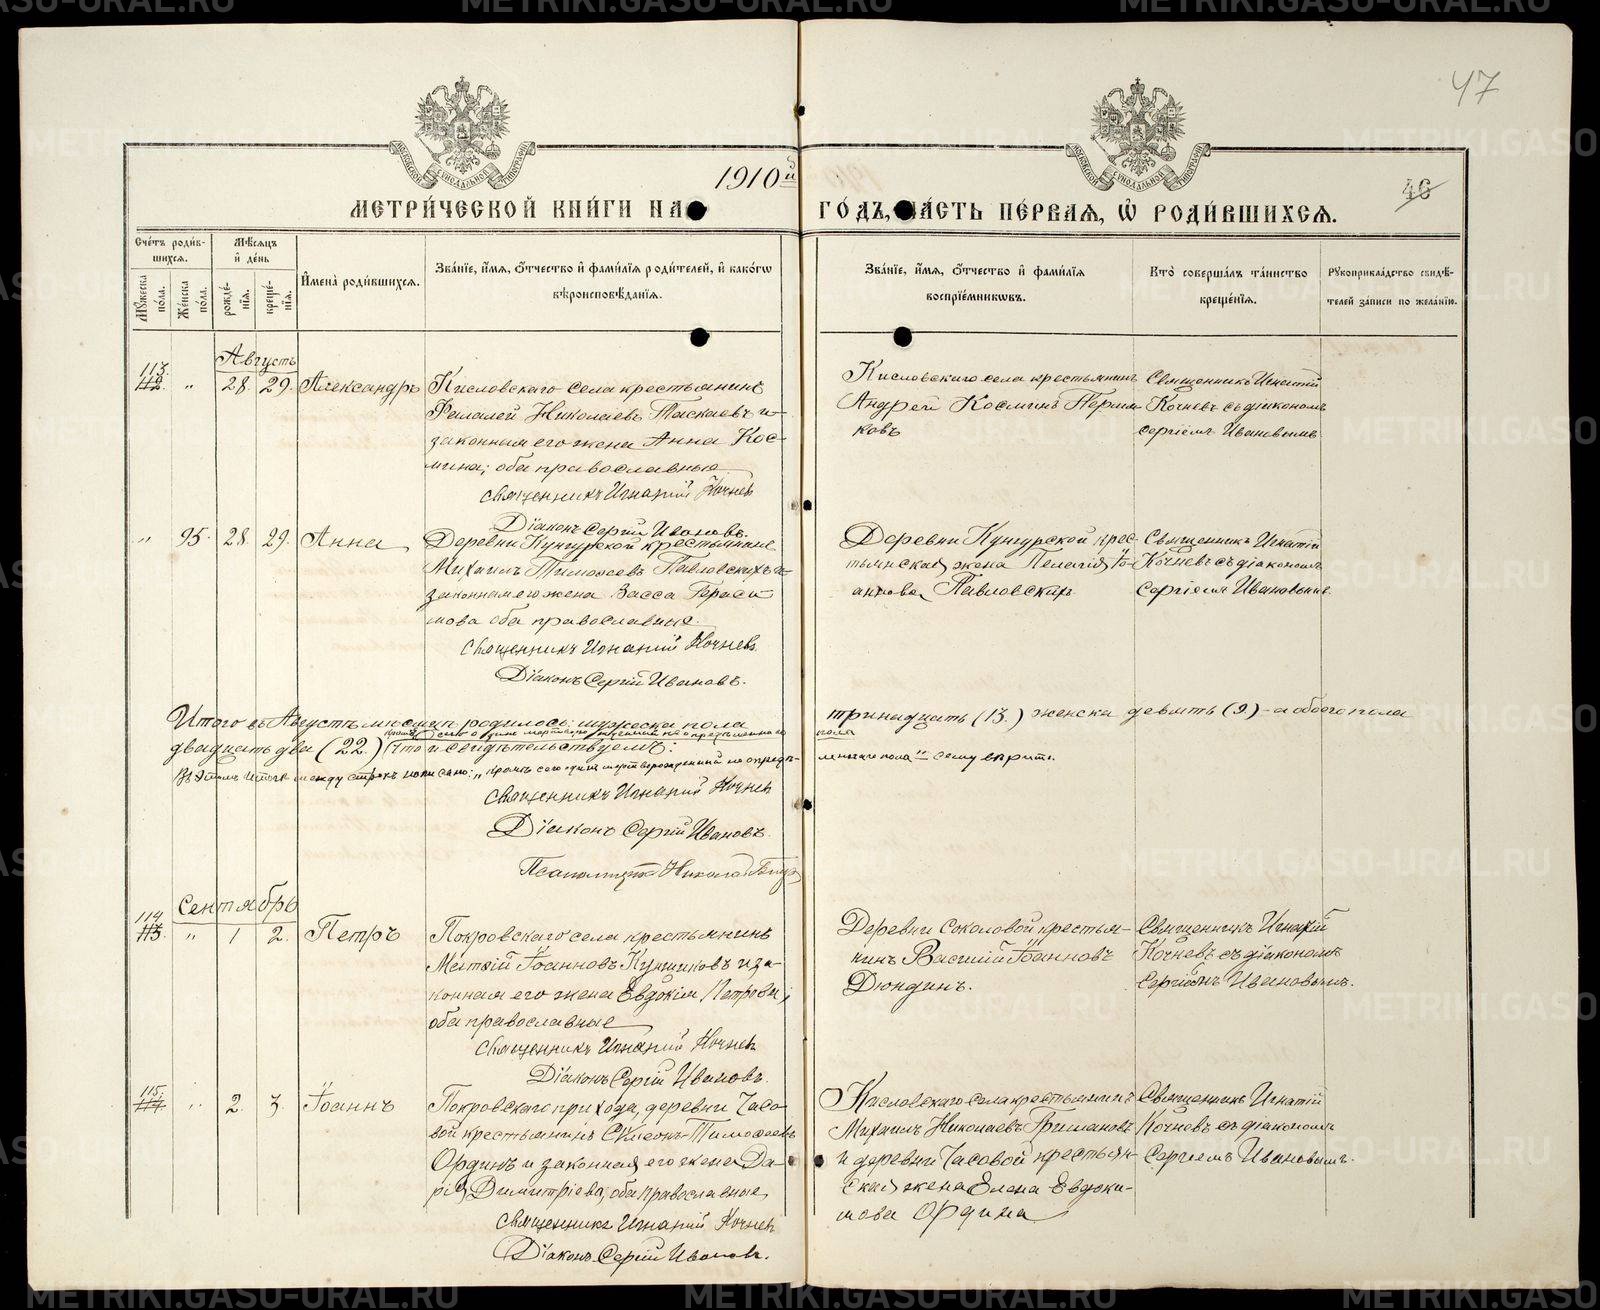 47
46
1910й
МЕТРИ́ЧЕСКОЙ КНИ́ГИ НА
ГО́ДЪ, ЧА́СТЬ ПЕ́РВАЯ, Ѡ РОДИ́ВШИХСЯ.
Сче́тъ роди́вшихся.
Мѣ́сяцъ и҆ де́нь
Мꙋ́жеска по́ла.
Же́нска по́ла.
рожде́нїѧ.
креще́нїѧ.
И҆мена̀ роди́вшихсѧ.
Зва́нїе, и҆́мѧ, ѻ҆́тчество и҆ фами́лїѧ роди́телей, и҆ како́гѡ
вѣроисповѣ́данїѧ.
Зва́нїе, и҆́мѧ, ѻ҆́тчество и҆ фами́лїѧ
воспрїе́мникѡвъ.
Кто̀ соверша́лъ та́инство
креще́нїѧ.
Рꙋкоприкла́дство свидѣ́-
телей за́писи по жела́нїю.
Августъ
113.
112.
„
28
29.
Александръ
Кисловскаго села крестьянинъ
Фалалей Николаевъ Таскаевъ и
законная его жена Анна Кос-
мина; оба православные
Священникъ Игнатій Кочневъ
Діаконъ Сергій Ивановъ.
Кисловскаго села крестьянинъ
Андрей Косминъ Перми-
ковъ
Священникъ Игнатій
Кочневъ съ діакономъ
Сергіемъ Ивановымъ
„
95.
28.
29.
Анна
Деревни Кунгурской крестьянинъ
Михаилъ Тимофеевъ Павловскихъ и
законная его жена Васса Гераси
мова оба православные.
Священникъ Игнатій Кочневъ
Діаконъ Сергій Ивановъ.
Деревни Кунгурской крес-
тьянская жена Пелагія Іо-
аннова Павловскихъ
Священникъ Игнатій
Кочневъ съ діакономъ
Сергіемъ Ивановымъ
Итого въ Августѣ мѣсяцѣ родилось: мужеска пола
тринадцать (13.) женска девять (9.) - а обоего пола
кромѣ сего одинъ мертворожденный не опредѣленнаго
пола
двадцать два (22.) что и свидѣтельствуемъ:
Въ этомъ итогѣ между строкъ написано: „кромѣ сего одинъ мертворожденный не опредѣ-
леннаго пола" сему вѣрить.
Священникъ Игнатій Кочневъ
Діаконъ Сергій Ивановъ.
Псаломщикъ Николай
Сентябрь
114.
113.
„
1
2.
Петръ
Покровскаго села крестьянинъ
Іоанновъ и за-
конная его жена Евдокія Петрова;
оба православные
Священникъ Игнатій Кочневъ
Діаконъ Сергій Ивановъ.
Деревни Соколовой крестья-
нинъ Василій Іоанновъ
Дюндинъ.
Священникъ Игнатій
Кочневъ съ діакономъ
Сергіемъ Ивановымъ.
115.
114.
„
2.
3.
Іоаннъ
Покровскаго прихода, деревни Часо-
вой крестьянинъ Симеонъ Тимофеевъ
Ординъ и законная его жена Да-
рія Димитріева; оба православные,
Священникъ Игнатій Кочневъ
Діаконъ Сергій Ивановъ.
Кисловскаго села крестьянинъ
Михаилъ Николаевъ
и деревни Часовой крестьян-
ская жена Елена Евдоки-
мова Ордина
Священникъ Игнатій
Кочневъ съ діакономъ
Сергіемъ Ивановымъ.
METRIKI.GASO-URAL.RU